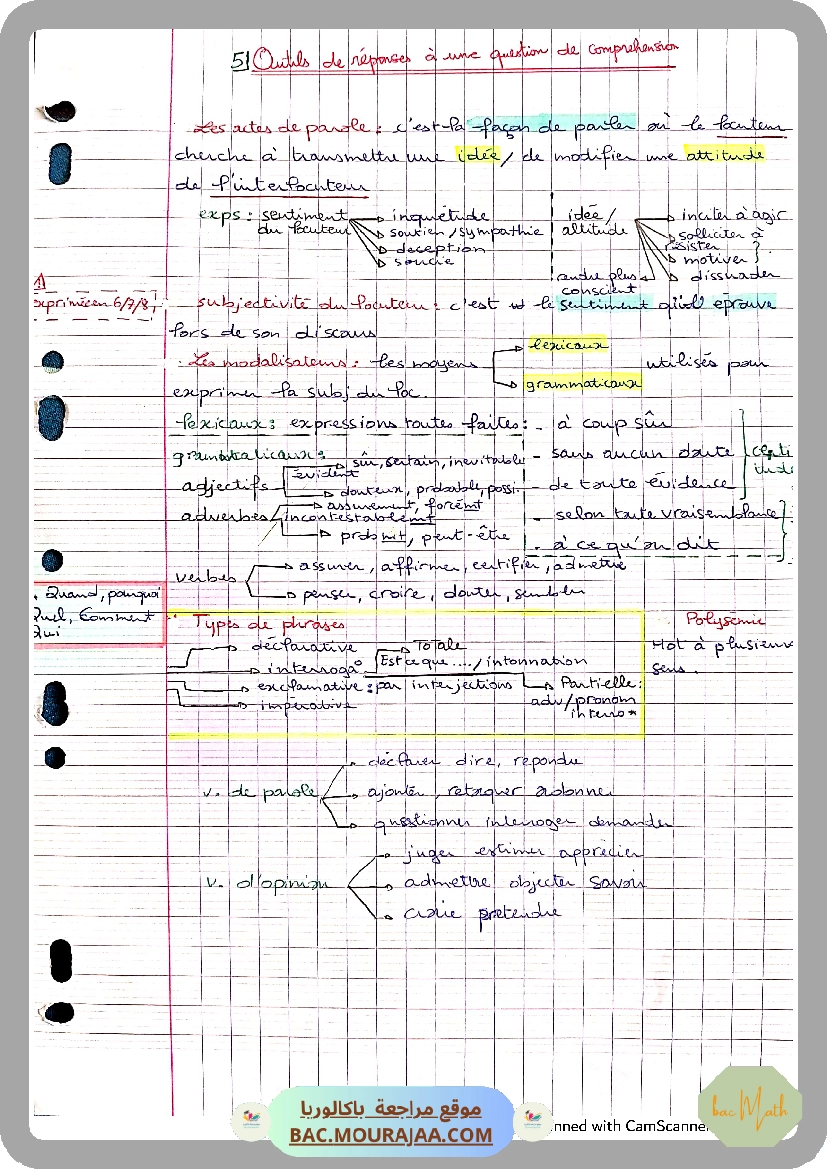 5) Outils de réponses à une question de comprehension
Les actes de parole : c'est la façon de parler où le locuteur
cherche à transmettre une idée / de modifier une attitude
de l'interlocuteur
exps : sentiment du locuteur
inquiétude
soutien / sympathie
deception
soucie
idée / altitude
inciter à agir
solliciter à
résister
motiver
dissuader
rendre plus conscient
1)
exprimée en 6/7/8
subjectivité du locuteur : c'est le sentiment qu'il éprouve
lors de son discours
Les modalisateurs : les moyens
lexicaux
grammaticaux
utilisés pour
exprimer la subj du loc.
lexicaux : expressions toutes faites : - à coup sûr
- sans aucun doute
- de toute évidence
certitude
- selon toute vraisemblance
- à ce qu'on dit
grammaticaux :
adjectifs
sûr, certain, inevitable
évident
douteux, probable, possi.
adverbes
assurement, forcémt
incontestablemt
probmt, peut-être
verbes
assurer, affirmer, certifier, admettre
penser, croire, douter, sembler
. Quand, pourquoi
Quel, Comment
Qui
Types de phrases
déclarative
interrog°
Totale
Est ce que .... / intonnation
exclamative : par interjections
Partielle :
adv/pronom
interro *
impérative
Polysémie
Mot à plusieurs
sens.
v. de parole
déclarer dire, repondre
ajouter, retorquer
questionner interroger demander
v. d'opinion
juger estimer apprécier
admettre objecter savoir
croire pretendre
موقع مراجعة باكالوريا
BAC.MOURAJAA.COM
nned with CamScanner
bac Math